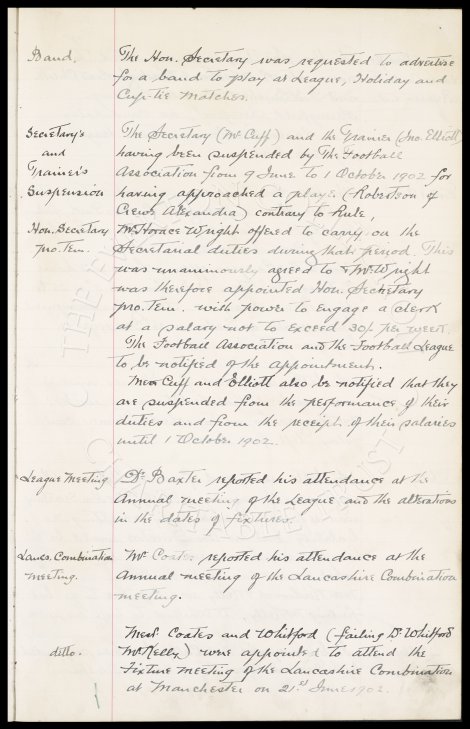 Band.
The Hon. Secretary was requested to advertise
for a band to play at League, Holiday and
Cup-tie matches.
Secretary's
and
Trainer's
Suspension
The Secretary (Mr Cuff) and the Trainer (Jno. Elliott)
having been suspended by The Football
Association from 9 June to 1 October 1902 for
having approached a player (Robertson of
Crewe Alexandra) contrary to Rule,
Hon. Secretary
pro. tem.
Mr Horace Wright offered to carry on the
Secretarial duties during that period. This
was unanimously agreed to & Mr Wright
was therefore appointed Hon. Secretary
pro. tem. with power to engage a clerk
at a salary not to exceed 30/- per week.
The Football Association and the Football League
to be notified of the appointment.
Messrs Cuff and Elliott also be notified that they
are suspended from the performance of their
duties and from the receipt of their salaries
until 1 October 1902.
League Meeting
Dr. Baxter reported his attendance at the
Annual meeting of the League and the alterations
in the dates of fixtures.
Lancs. Combination
meeting.
Mr Coates reported his attendance at the
Annual meeting of the Lancashire Combination
meeting.
ditto.
Messrs Coates and Whitford (failing Dr Whitford
Mr Kelly) were appointed to attend the
Fixture meeting of the Lancashire Combination
at Manchester on 21st June 1902.